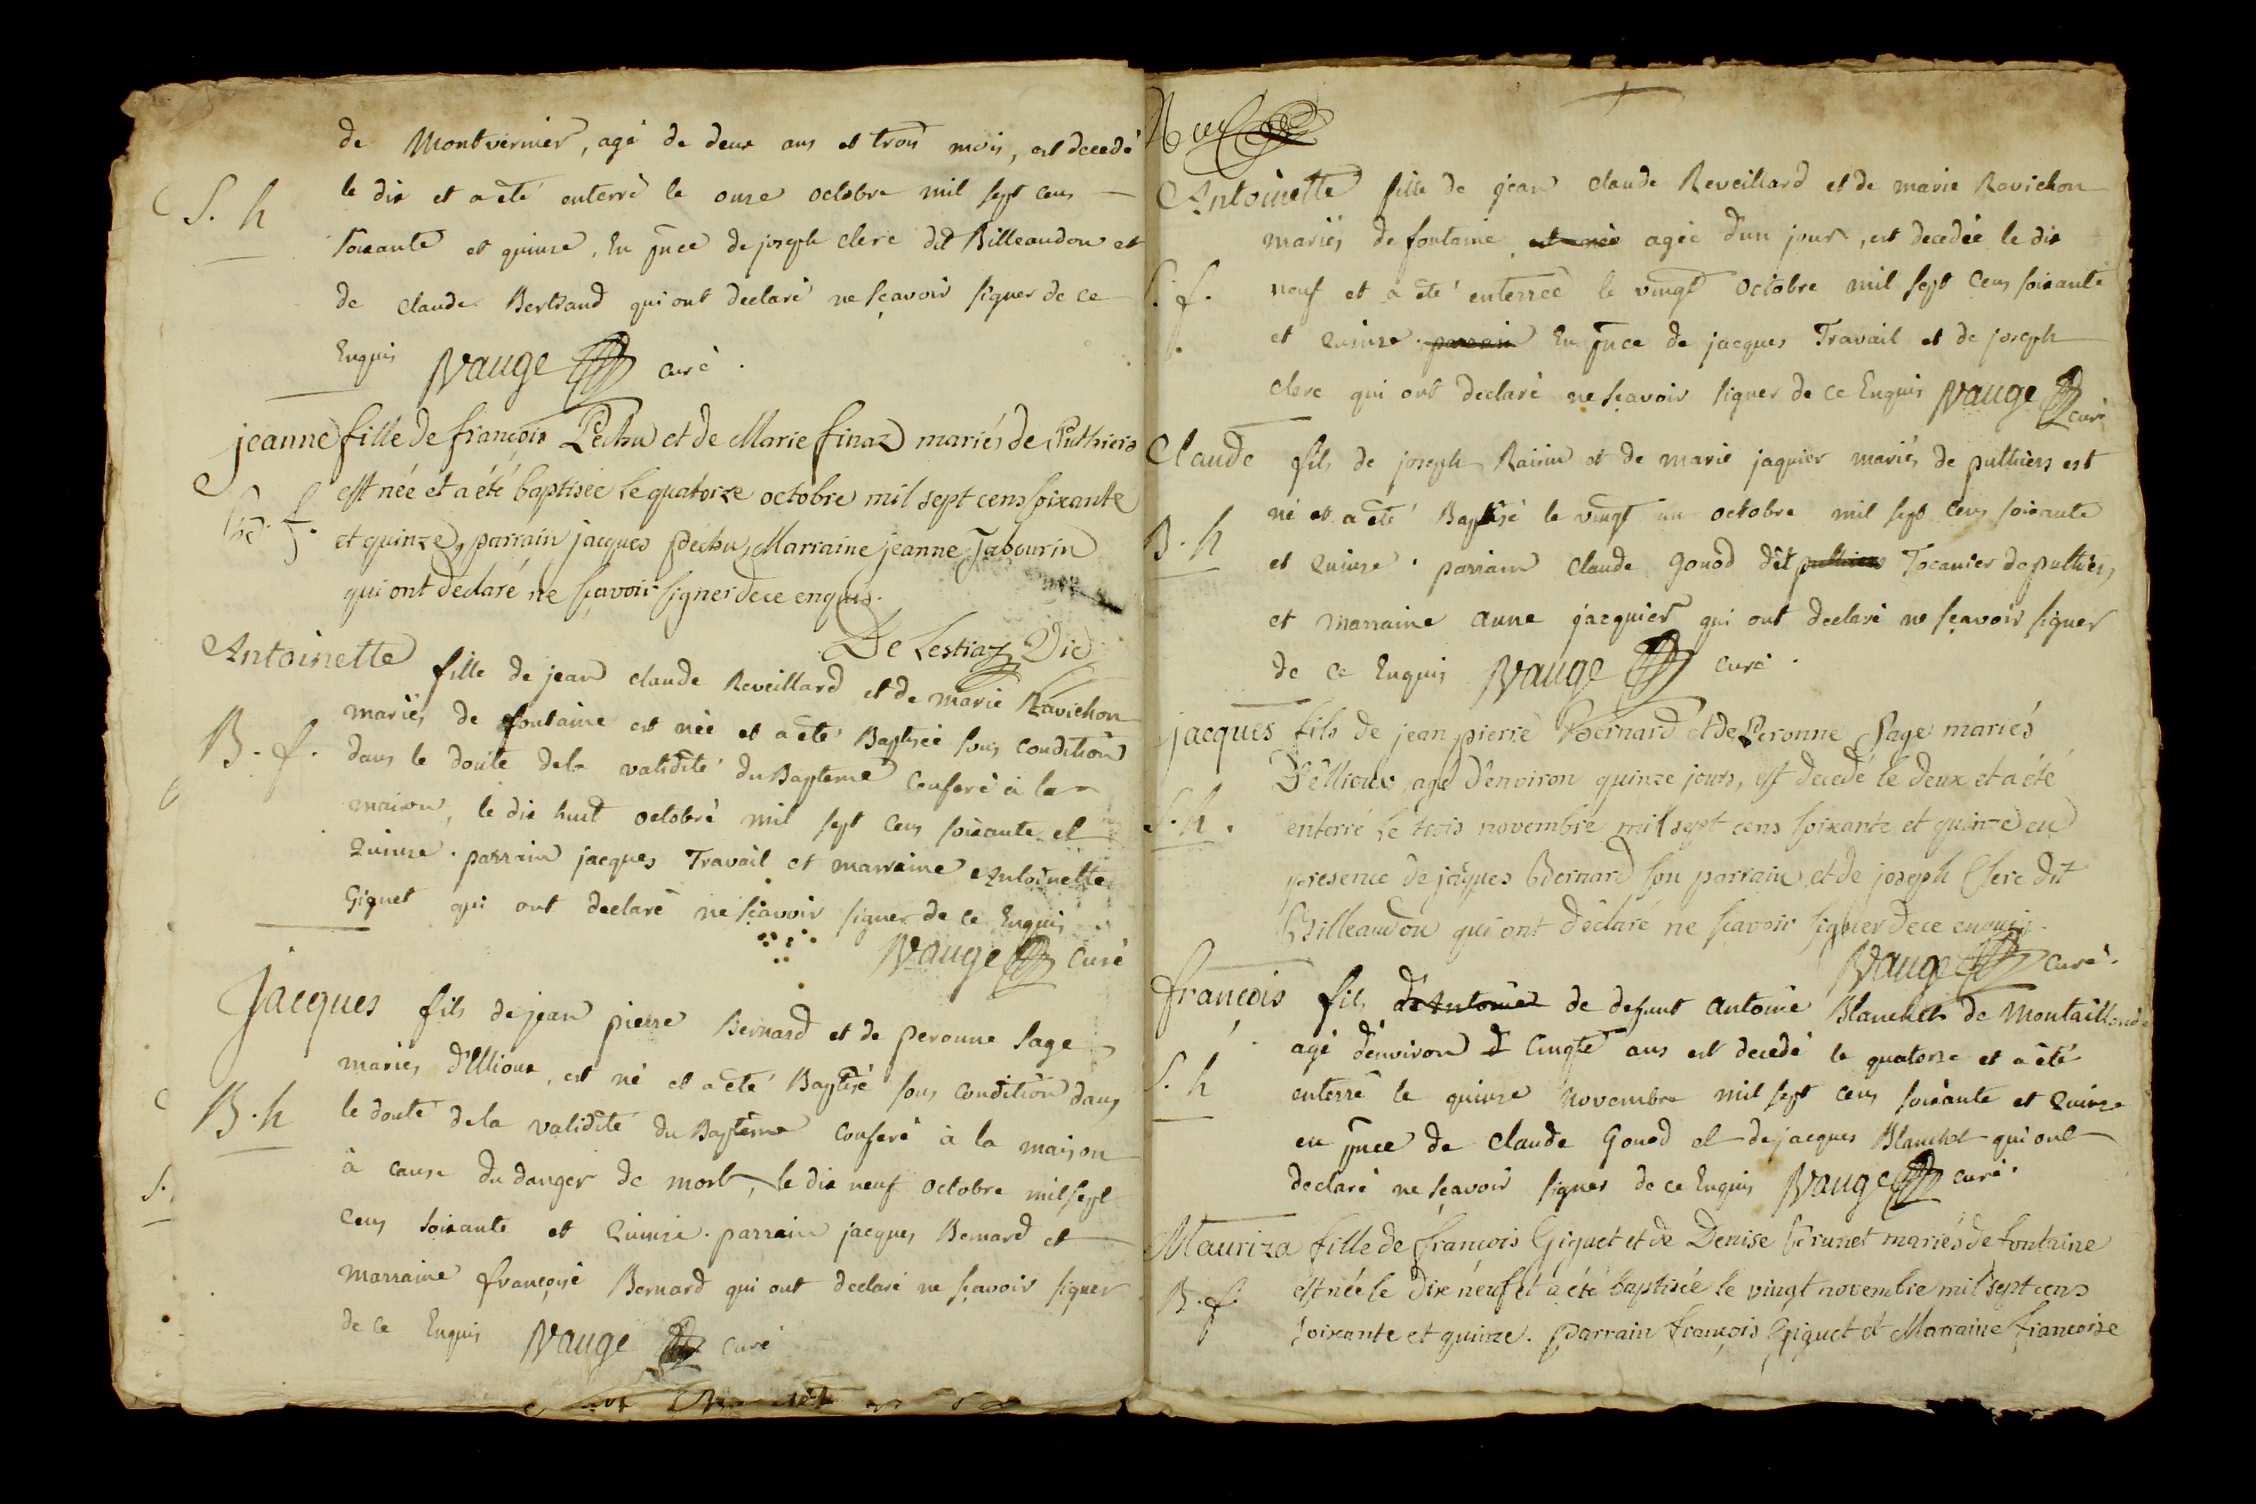 de Montvernier, agé de deux ans et trois mois, est decedé
le dix et a eté enterré le onze octobre mil sept cens
S. h
soixante et quinze, En pnce de joseph clerc dit Billeaudon et
de claude Bertrand qui ont declaré ne sçavoir signer de ce
Enquis Vauge curé.
jeanne fille de françois Pechu et de Marie finaz mariés de Puthiers
est née et a été baptisée le quatorze octobre mil sept cens soixante
f.
et quinze, parrain jacques pechu, Marraine jeanne Jabourin
qui ont déclaré ne sçavoir signer de ce enquis.
De Lestiaz Vic
Antoinette fille de jean claude Reveillard et de marie Ravichon
mariés de fontaine est née et a eté Baptisée sous condition
B. f.
dans le doute de la validité du Bapteme conferé à la
maison, le dix huit octobre mil sept cens soixante et
Quinze. parrain jacques Travail et marraine Antoinette
Giguet qui ont declaré ne sçavoir signer de ce Enquis
Vauge Curé
Jacques fils de jean pierre Bernard et de peronne sage
mariés d'Ellioux, est né et a eté Baptisé sous condition dans
B. h
le doute de la validité du Bapteme conferé à la maison
à cause du danger de mort, le dix neuf octobre mil sept
S.
cens soixante et Quinze. parrain jacques Bernard et
marraine françoise Bernard qui ont declaré ne sçavoir signer
de ce Enquis Vauge curé
Antoinette fille de jean claude Reveillard et de marie Ravichon
mariés de fontaine, est née agée d'un jour, est decedée le dix
S. f.
neuf et a eté enterrée le vingt octobre mil sept cens soixante
et Quinze. parrain En pnce de jacques Travail et de joseph
clerc qui ont declaré ne sçavoir signer de ce Enquis Vauge
curé
Claude fils de joseph Raisin et de marie jaquier mariés de puthiers est
né et a eté Baptisé le vingt un octobre mil sept cens soixante
B. h
et Quinze. parrain claude gonod dit puthiers Tocanier de puthiers,
et marraine anne jacquier qui ont declaré ne sçavoir signer
de ce Enquis Vauge curé.
jacques fils de jean pierre Bernard et de Peronne Sage mariés
D'éllioux, agé d'environ quinze jours, est decedé le deux et a été
S. h.
enterré le trois novembre mil sept cens soixante et quinze en
presence de jaques Bernard son parrain, et de joseph Clerc dit
Billeaudon qui ont déclaré ne sçavoir signer de ce enquis.
Vauge curé.
françois fils d'antoine de defunt antoine Blanchet de Montaillonde
agé d'environ cinqte ans est decedé le quatorze et a été
S. h
enterré le quinze Novembre mil sept cens soixante et Quinze
en pnce de claude Gonod et de jacques Blanchet qui ont
declaré ne sçavoir signer de ce Enquis Vauge curé.
Mauriza fille de françois Giguet et de Denise Brunet mariés de fontaine
B. f.
est née le dix neuf et a été baptisée le vingt novembre mil sept cens
soixante et quinze. parrain françois Giguet et Marraine françoise